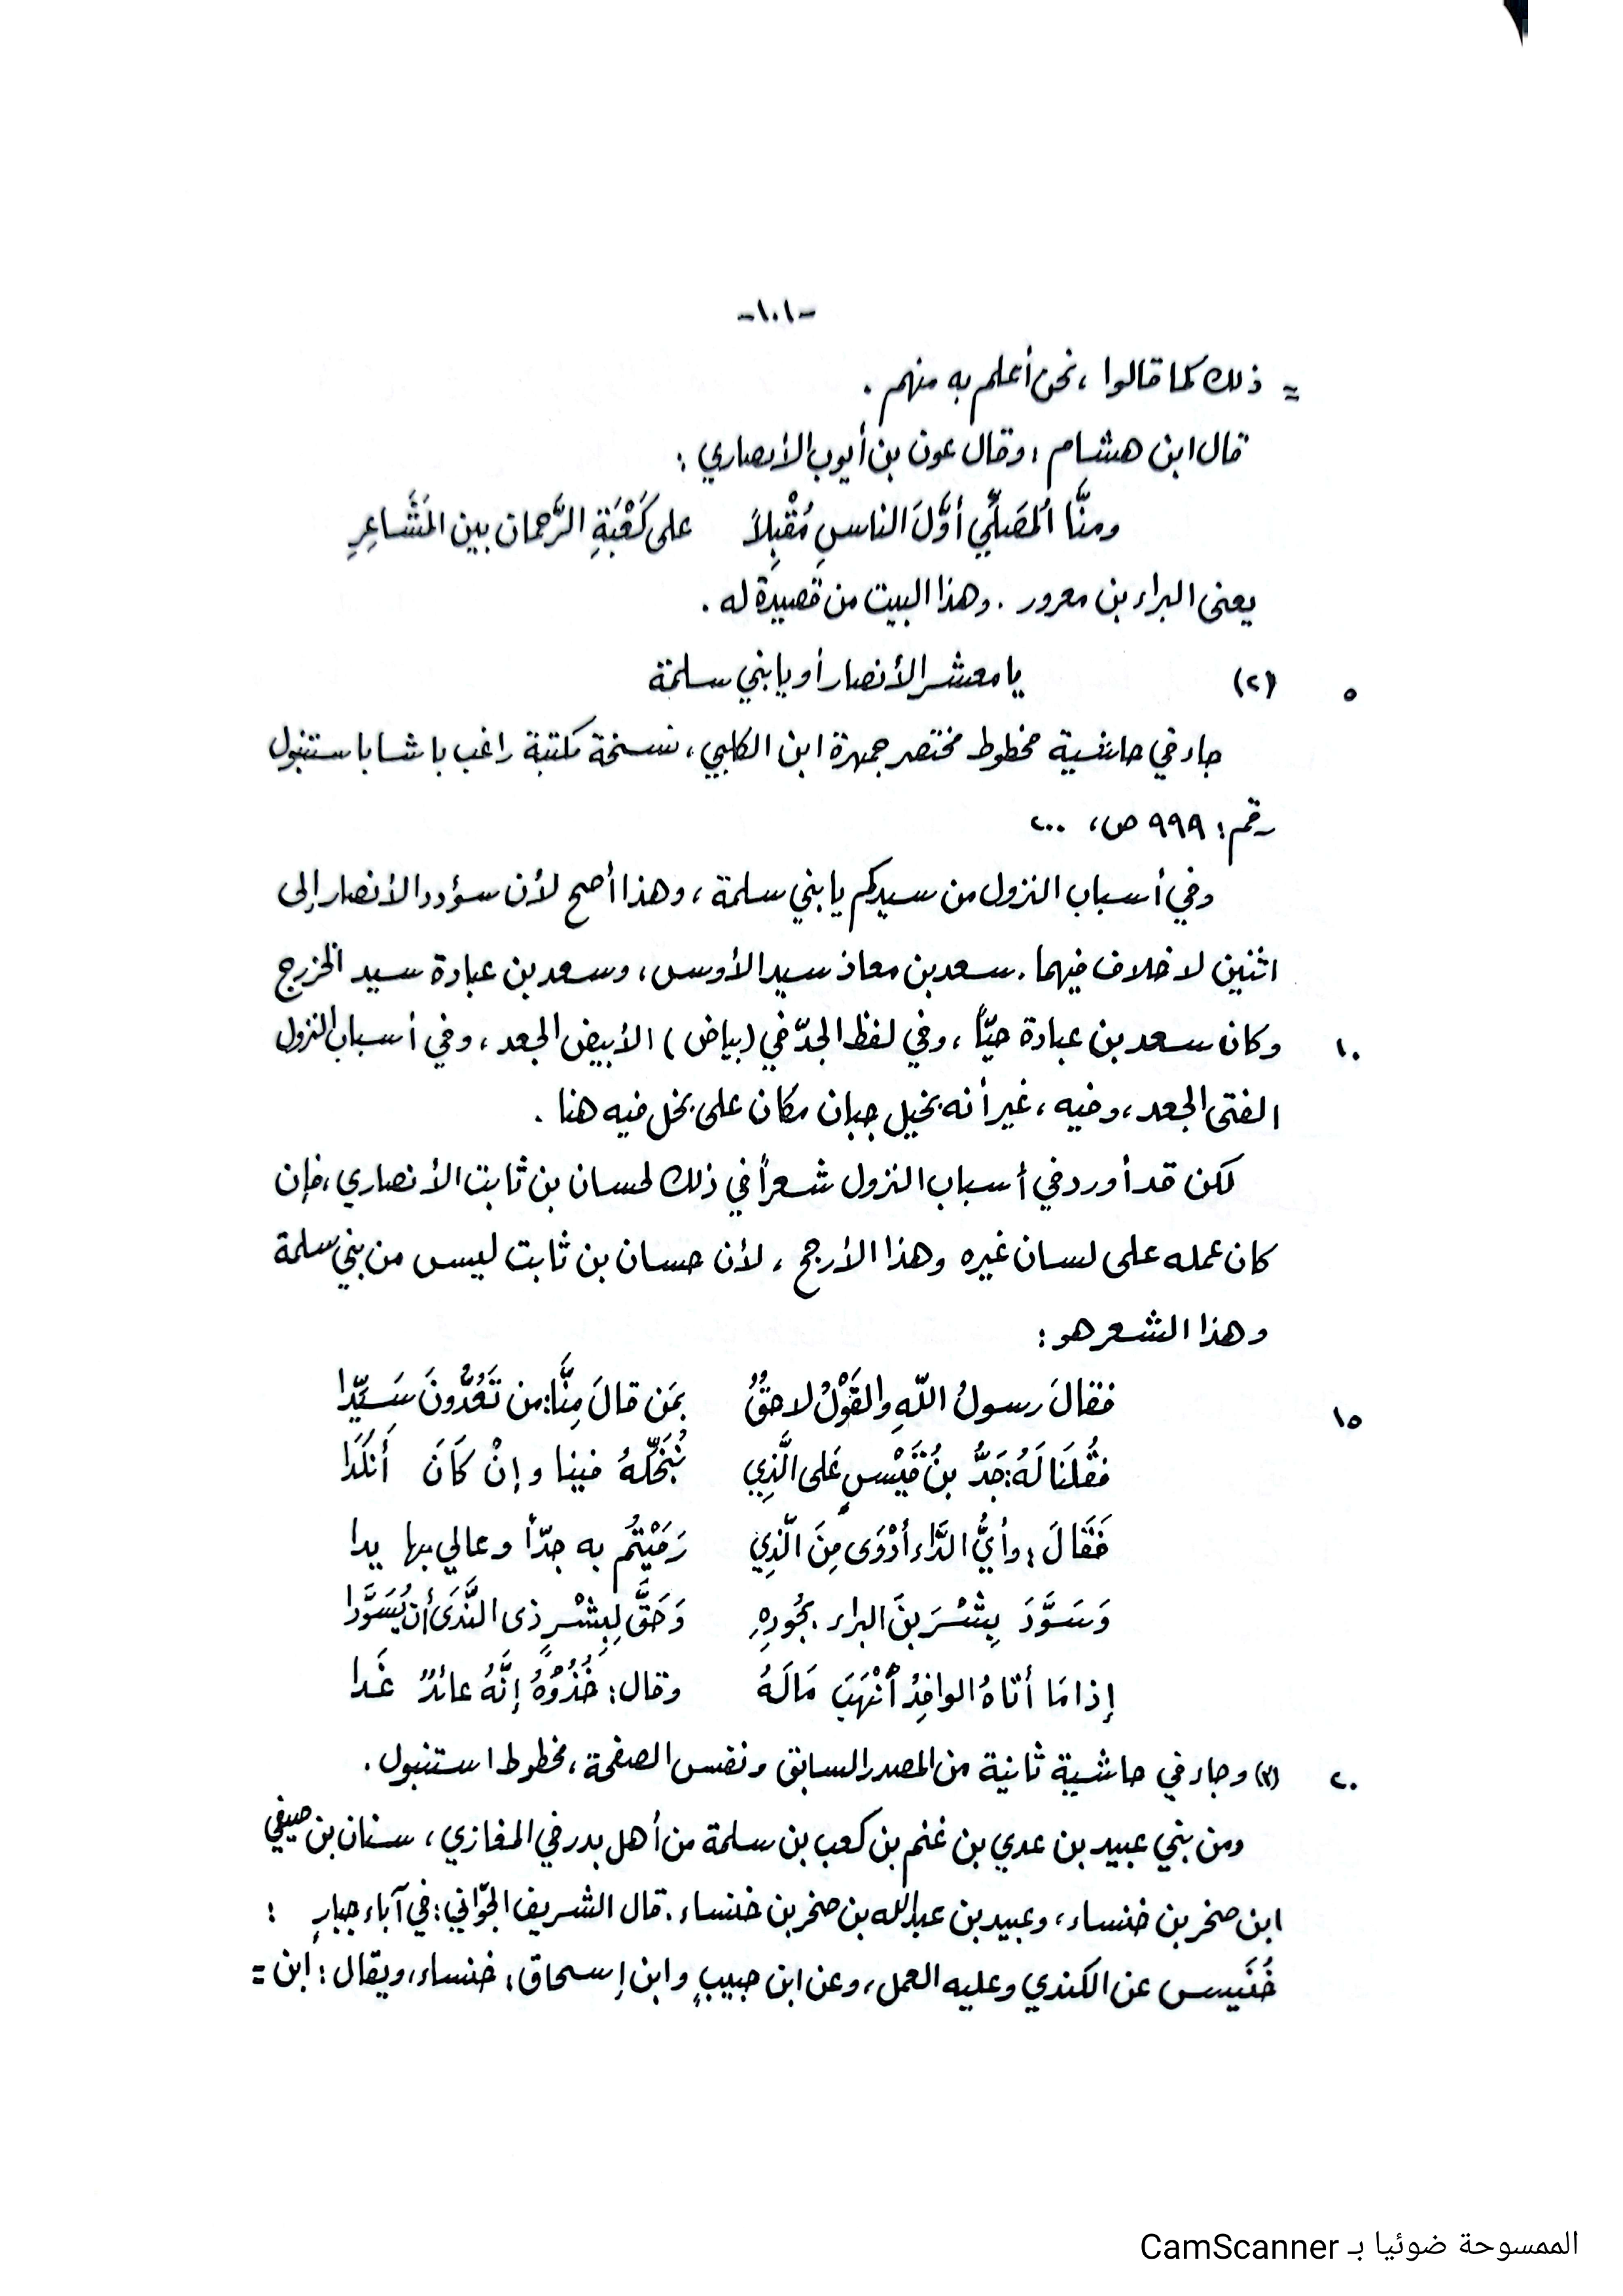 -١٠١-
= ذلك كما قالوا، نحن أعلم به منهم.
قال ابن هشام: وقال عون بن أيوب الأنصاري:
ومنَّا المُصَلِّي أوَّلَ الناسِ مُقْبِلاً على كَعْبَةِ الرَّحمان بين المَشَاعِرِ
يعني البراء بن معرور. وهذا البيت من قصيدة له.
٥ (٢) يا معشر الأنصار أو يا بني سلمة
جاء في حاشية مخطوط مختصر جمهرة ابن الكلبي، نسخة مكتبة راغب باشا باستنبول
رقم: ٩٩٩ ص، ٢٠٠
وفي أسباب النزول من سيدكم يا بني سلمة، وهذا أصح لأن سؤدد الأنصار إلى
اثنين لا خلاف فيهما. سعد بن معاذ سيد الأوس، وسعد بن عبادة سيد الخزرج
١٠ وكان سعد بن عبادة حيّاً، وفي لفظ الجدّ في (بياض) الأبيض الجعد، وفي أسباب النزول
الفتى الجعد، وفيه، غير أنه بخيل جبان مكان على بخل فيه هنا.
لكن قد أورد في أسباب النزول شعراً في ذلك لحسان بن ثابت الأنصاري، فإن
كان عمله على لسان غيره وهذا الأرجح، لأن حسان بن ثابت ليس من بني سلمة
وهذا الشعر هو:
١٥ فقالَ رسولُ اللّهِ والقَوْلُ لاحقٌ بمَن قالَ مِنَّا: من تَعُدُّونَ سَيِّدا
فقُلنَا لَهُ: جَدُّ بنُ قَيْسٍ عَلى الَّذِي نُبَخِّلهُ فينا وإنْ كَانَ أَنكَدَا
فَقَالَ: وأيُّ الدَّاء أدْوَى مِنَ الَّذِي رَمَيْتُم به جدّاً وعالي بها يدا
وَسَوَّدَ بِشْرَ بنَ البراء بجُودِهِ وَحَقَّ لِبِشْرٍ ذى النَّدَى أن يُسَوَّدا
إذا مَا أتاهُ الوافِدُ أَنْهَبَ مَالَهُ وقال: خُذُوْهُ إنَّهُ عائدٌ غَدا
٢٠ (٣) وجاء في حاشية ثانية من المصدر السابق ونفس الصفحة، مخطوط استنبول.
ومن بني عبيد بن عدي بن غنم بن كعب بن سلمة من أهل بدر في المغازي، سنان بن صيفي
ابن صخر بن خنساء، وعبيد بن عبدالله بن صخر بن خنساء. قال الشريف الجوّاني: في آباء جبارٍ :
خُنَيس عن الكندي وعليه العمل، وعن ابن حبيبٍ وابن إسحاق: خنساء، ويقال: ابن =
الممسوحة ضوئيا بـ CamScanner